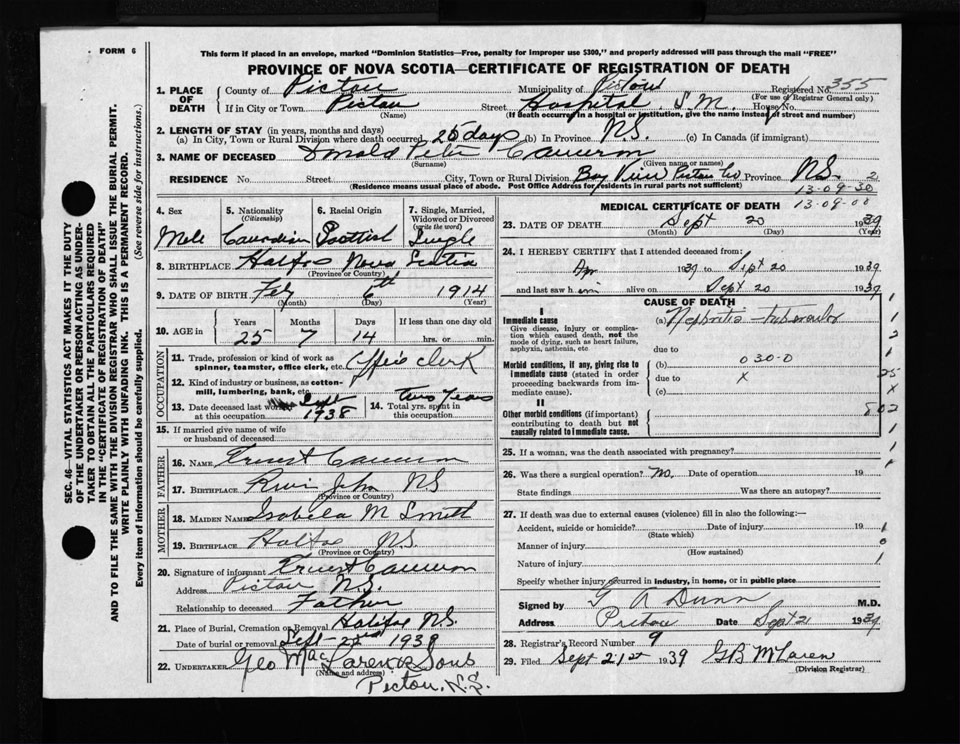 FORM 6
This form if placed in an envelope, marked "Dominion Statistics—Free, penalty for improper use $300," and properly addressed will pass through the mail "FREE"
PROVINCE OF NOVA SCOTIA—CERTIFICATE OF REGISTRATION OF DEATH
SEC. 46—VITAL STATISTICS ACT MAKES IT THE DUTY
OF THE UNDERTAKER OR PERSON ACTING AS UNDER-
TAKER TO OBTAIN ALL THE PARTICULARS REQUIRED
IN THE "CERTIFICATE OF REGISTRATION OF DEATH"
AND TO FILE THE SAME WITH THE DIVISION REGISTRAR WHO SHALL ISSUE THE BURIAL PERMIT.
WRITE PLAINLY WITH UNFADING INK. THIS IS A PERMANENT RECORD.
Every item of information should be carefully supplied. (See reverse side for instructions.)
1. PLACE OF DEATH
County of Pictou Municipality of Pictou Registered No. 355
(For use of Registrar General only)
If in City or Town Pictou Street Hospital S.M. House No.
(If death occurred in a hospital or institution, give the name instead of street and number)
2. LENGTH OF STAY (in years, months and days)
(a) In City, Town or Rural Division where death occurred 25 days (b) In Province N.S. (c) In Canada (if immigrant)
3. NAME OF DECEASED Donald Peter Cameron
(Surname) (Given name or names)
RESIDENCE No. Street City, Town or Rural Division Bay View Pictou Co Province N.S. 2
(Residence means usual place of abode. Post Office Address for residents in rural parts not sufficient)
13-09-30
13-09-00
4. Sex
Male
5. Nationality
(Citizenship)
Canadian
6. Racial Origin
Scottish
7. Single, Married,
Widowed or Divorced
(write the word)
Single
8. BIRTHPLACE Halifax Nova Scotia
(Province or Country)
9. DATE OF BIRTH Feb 6th 1914
(Month) (Day) (Year)
10. AGE in
Years Months Days If less than one day old
25 7 14 hrs. or min.
OCCUPATION
11. Trade, profession or kind of work as
spinner, teamster, office clerk, etc. Office Clerk
12. Kind of industry or business, as cotton-
mill, lumbering, bank, etc.
13. Date deceased last worked
at this occupation Sept 1938
14. Total yrs. spent in
this occupation two years
15. If married give name of wife
or husband of deceased
FATHER
16. NAME Ernest Cameron
17. BIRTHPLACE River John NS
(Province or Country)
MOTHER
18. MAIDEN NAME Isabela M Smith
19. BIRTHPLACE Halifax N.S.
(Province or Country)
20. Signature of informant Ernest Cameron
Address Pictou N.S.
Relationship to deceased Father
21. Place of Burial, Cremation or Removal Halifax N.S.
Date of burial or removal Sept- 22nd 1939
22. UNDERTAKER Geo MacLaren & Sons
(Name and address)
Pictou, N.S.
MEDICAL CERTIFICATE OF DEATH
23. DATE OF DEATH Sept 20 1939
(Month) (Day) (Year)
24. I HEREBY CERTIFY that I attended deceased from:
1939 to Sept 20 1939
and last saw him alive on Sept 20 1939
CAUSE OF DEATH
I
Immediate cause (a) Nephritis - tubercular
Give disease, injury or complica-
tion which caused death, not the
mode of dying, such as heart failure,
asphyxia, asthenia, etc
due to
Morbid conditions, if any, giving rise to
immediate cause (stated in order
proceeding backwards from im-
mediate cause).
(b) 030-0
due to x
(c)
II
Other morbid conditions (if important)
contributing to death but not
causally related to immediate cause.
1
1
2
1
25
x
802
1
1
25. If a woman, was the death associated with pregnancy?
26. Was there a surgical operation? no. Date of operation 19
State findings Was there an autopsy?
27. If death was due to external causes (violence) fill in also the following:—
Accident, suicide or homicide? Date of injury 19
(State which)
Manner of injury 0
(How sustained)
Nature of injury 1
Specify whether injury occurred in industry, in home, or in public place
Signed by G A Dunn M.D.
Address Pictou Date Sept 21 1939
28. Registrar's Record Number 9
29. Filed Sept 21st 1939 GB McLaren
(Division Registrar)